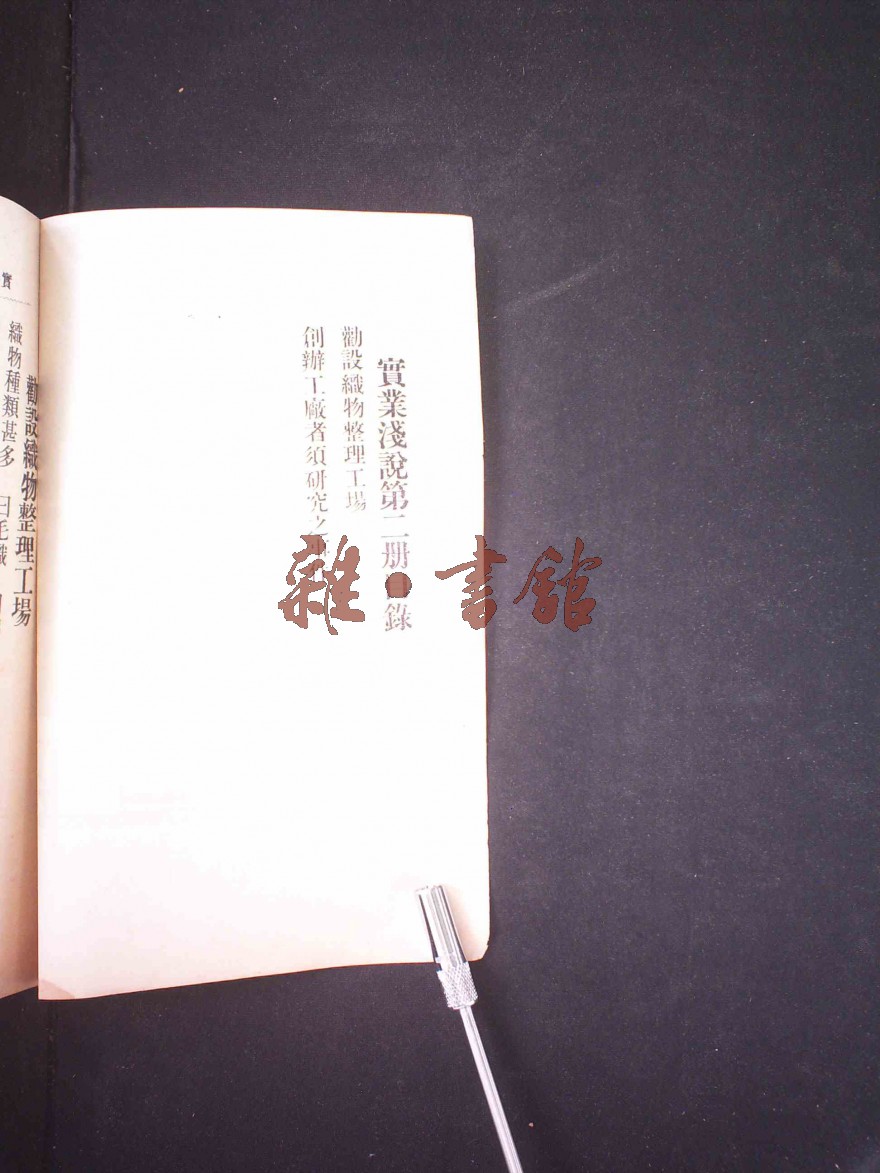 實業淺說第二册目錄
勸設織物整理工場
創辦工廠者須研究之
雜·書館
實
勸設織物整理工場
織物種類甚多 曰毛織